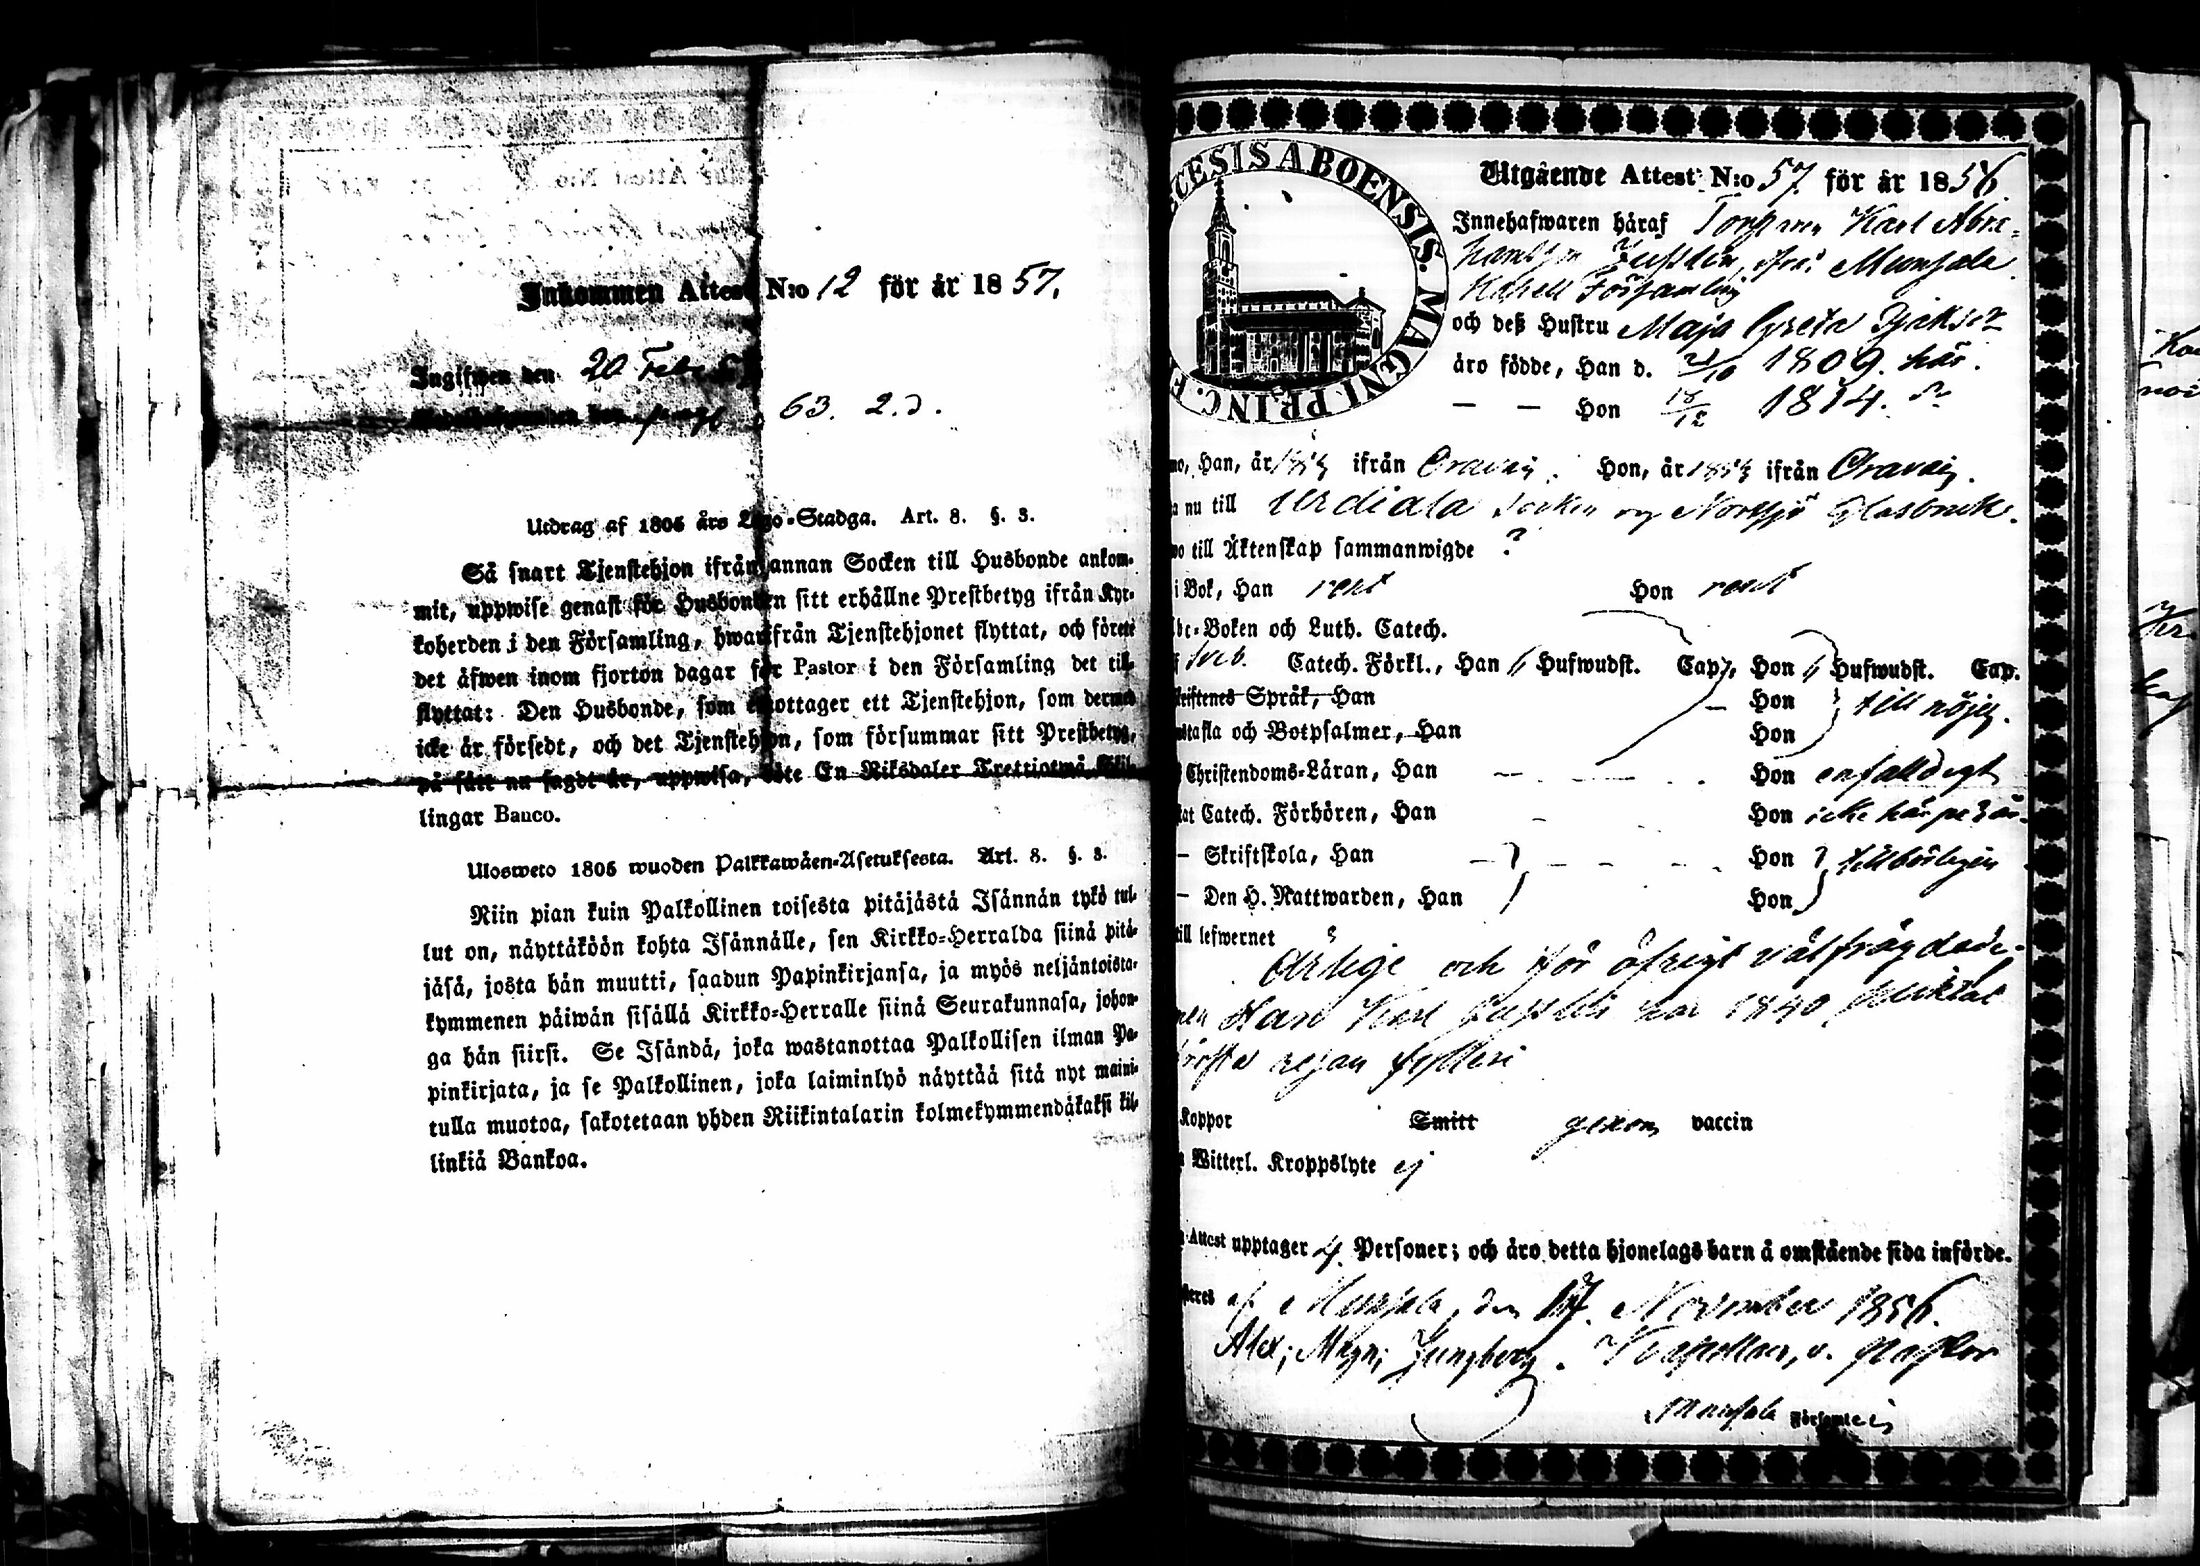 Inkommen Attest N:o 12 för år 1857.
Ingifwen den 20 Feb. 57
63. 2.d.
Utdrag af 1805 års Lego-Stadga. Art. 8. §. 3.
Så snart Tjenstehjon ifrån annan Socken till Husbonde ankom-
mit, uppwise genast för Husbonden sitt erhållne Prestbetyg ifrån Kyr-
koherden i den Församling, hwarifrån Tjenstehjonet flyttat, och förete
det äfwen inom fjorton dagar för Pastor i den Församling det till-
flyttat: Den Husbonde, som emottager ett Tjenstehjon, som dermed
icke är försedt, och det Tjenstehjon, som försummar sitt Prestbetyg,
på sätt nu sagdt är, uppwisa, böte En Riksdaler Trettiotwå Skil-
lingar Banco.
Ulosweto 1805 wuoden Palkkawäen-Asetuksesta. Art. 8. §. 3.
Niin pian kuin Palkollinen toisesta pitäjästä Isännän tykö tul-
lut on, näyttäköön kohta Isännälle, sen Kirkko-Herralda siinä pitä-
jäsä, josta hän muutti, saadun Papinkirjansa, ja myös neljäntoista-
kymmenen päiwän sisällä Kirkko-Herralle siinä Seurakunnasa, johon-
ga hän siirsi. Se Isändä, joka wastanottaa Palkollisen ilman Pa-
pinkirjata, ja se Palkollinen, joka laiminlyö näyttää sitä nyt maini-
tulla muotoa, sakotetaan yhden Riikintalarin kolmekymmendäkaksi kil-
linkiä Bankoa.
CESIS ABOENSIS. MAGNI. PRINC. F
Utgående Attest N:o 57 för år 1856
Innehafwaren häraf Karl Abra-
hamsson ifrån Munsala
Kapell Församling
och deß Hustru Maja Greta
äro födde, Han d. 1809. här.
— — Hon 18/12 1814.
no, Han, år ifrån Oravais. Hon, år ifrån Oravais.
a nu till Urdiala Socken og Nortsjö Glasbruk.
wo till Äktenskap sammanwigde ?
i Bok, Han rent Hon rent
Abc-Boken och Luth. Catech.
Sveb. Catech. Förkl., Han Hufwudst. Cap., Hon Hufwudst. Cap.
kriftenes Språk, Han — Hon till nöjes.
ustafla och Botpsalmer, Han Hon
Christendoms-Läran, Han — — Hon enfaldigt
tat Catech. Förhören, Han — Hon icke här på 3 år.
— Skriftskola, Han — — Hon tillbörligen
— Den H. Nattwarden, Han Hon
till lefwernet
Ärlige och för öfrigt välfrägdade.
men Han Karl har 1840 pliktat
Koppor Smitt genom vaccin
Witterl. Kroppslyte ej
Attest upptager 4 Personer; och äro detta hjonelags barn å omstående sida införde.
steres af Munsala, den 17. November 1856.
Alex; Magn; Ljungberg. Kapellan, v. Pastor
Munsala Församling